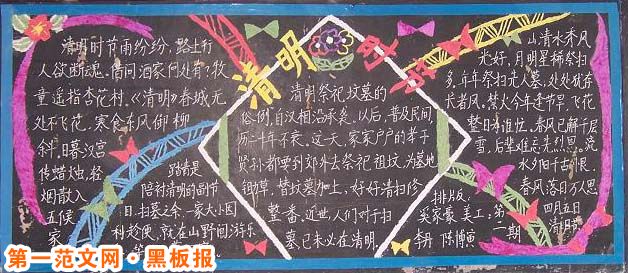 清明
清明时节雨纷纷，路上行
人欲断魂。借问酒家何处有？牧
童遥指杏花村。《清明》春城无
处不飞花，寒食东风御柳
斜，日暮汉宫
传蜡烛，轻
烟散入
五侯
家
踏青是
陪衬清明的副节
目，扫墓之余，一家大小围
科趁便，就在山野间游乐
清明祭祀坟墓的
俗例，自汉相沿承矣。以后，普及民间，
历二千年不衰。这一天，家家户户的孝子
贤孙都要到郊外去祭祀祖坟，为墓地
锄草，替扫墓加土，好好清扫修
整一番。近世人们对于扫
墓，已未必在清明。
山清水秀风
光好，月明星稀祭扫
多，年年祭扫先人墓，处处犹存
长者风。禁火今年逢节早，飞花
整日有谁怜。春风已解千层
雪，后辈难忘先烈恩。
水夕阳千古恨，
春风落日万人思
四月五日
清明节
排版：
吴家豪 美工：
李丹 陈博演
第一期
第一范文网·黑板报